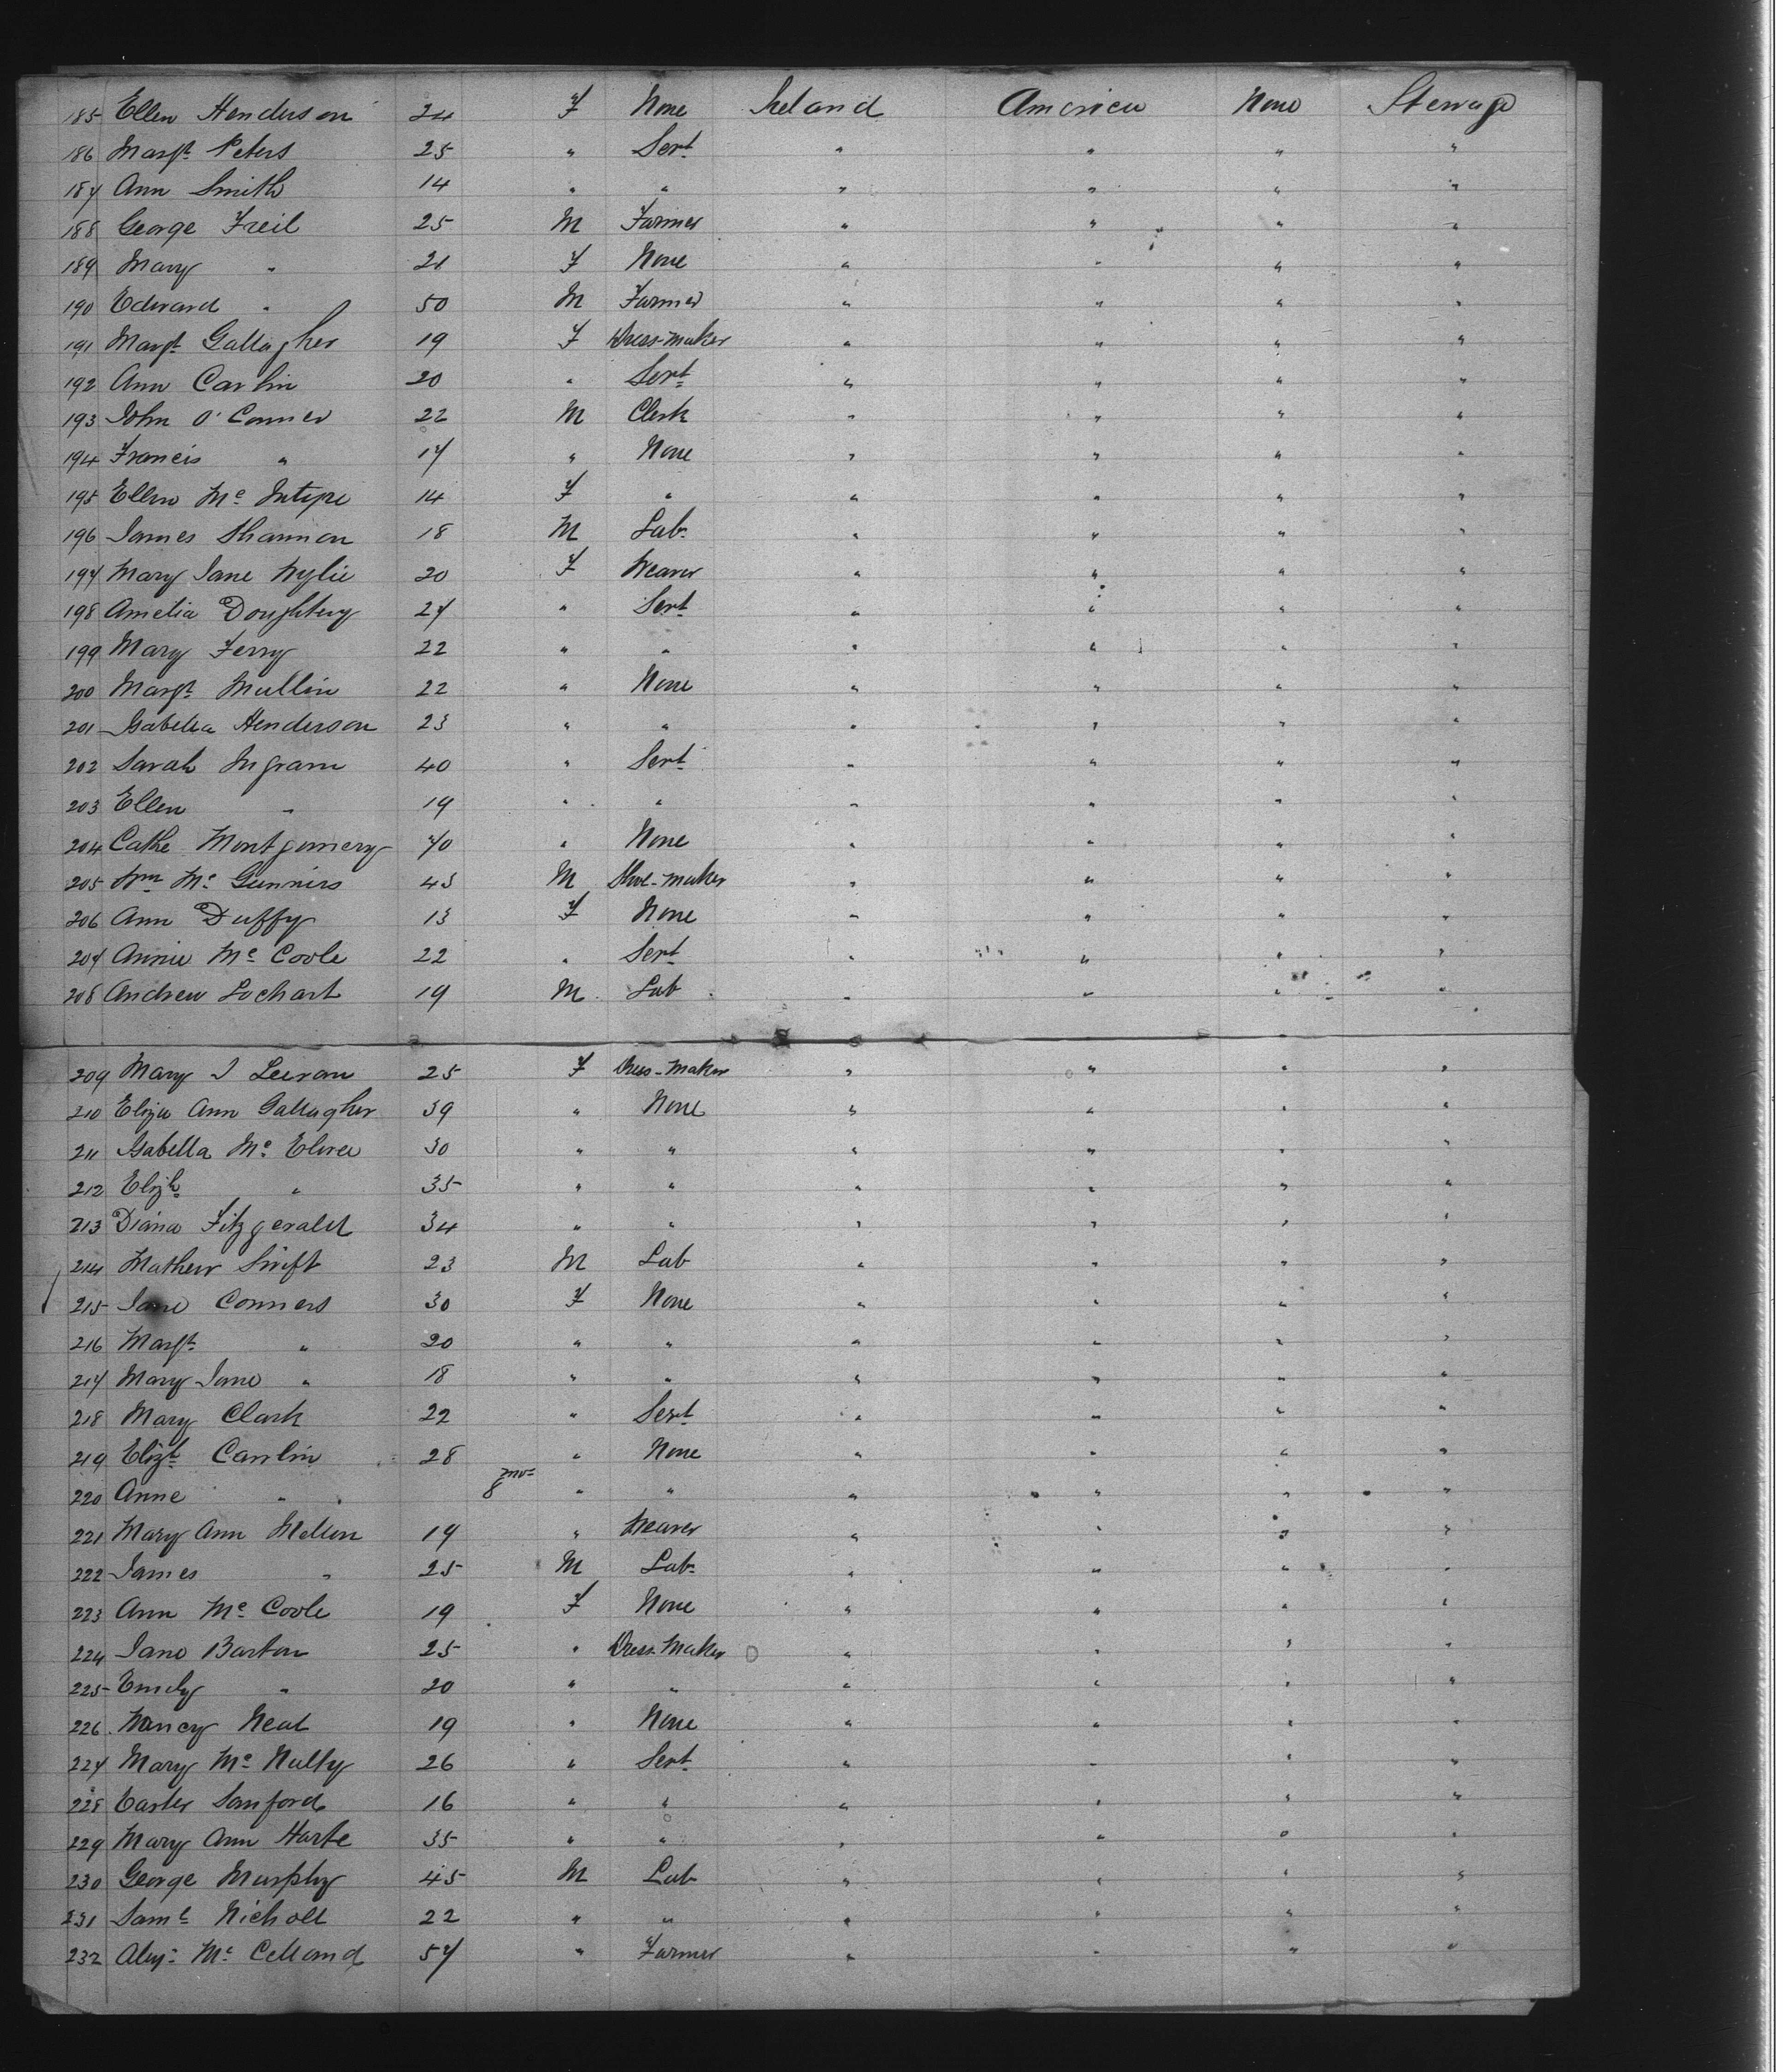 185 Ellen Henderson 24 F None Ireland America None Sterage
186 Margt Peters 25 " Sert " " " "
187 Ann Smith 14 " " " " " "
188 George Freil 25 M Farmer " " " "
189 Mary " 21 F None " " " "
190 Edward " 50 M Farmer " " " "
191 Margt Gallagher 19 F Dress-maker " " " "
192 Ann Carlin 20 " Sert " " " "
193 John O'Conner 22 M Clerk " " " "
194 Francis " 17 " None " " " "
195 Ellen Mc Intyre 14 F " " " " "
196 James Shannon 18 M Lab " " " "
197 Mary Jane Wylie 20 F Weaver " " " "
198 Amelia Doughtery 27 " Sert " " " "
199 Mary Ferry 22 " " " " " "
200 Margt Mullin 22 " None " " " "
201 Isabella Henderson 23 " " " " " "
202 Sarah Ingram 40 " Sert " " " "
203 Ellen " 19 " " " " " "
204 Cathe Montgomery 70 " None " " " "
205 Wm Mc Ginniss 43 M Shoe-maker " " " "
206 Ann Duffy 13 F None " " " "
207 Annie Mc Coole 22 " Sert " " " "
208 Andrew Lochart 19 M Lab " " " "
209 Mary J Leevan 25 F Dress-maker " " " "
210 Eliza Ann Gallagher 39 " None " " " "
211 Isabella Mc Elwee 30 " " " " " "
212 Elizh " 35 " " " " " "
213 Diana Fitzgerald 34 " " " " " "
214 Mathew Swift 23 M Lab " " " "
215 Jane Conners 30 F None " " " "
216 Margt " 20 " " " " " "
217 Mary Jane " 18 " " " " " "
218 Mary Clark 22 " Sert " " " "
219 Elizt Carrlin 28 " None " " " "
220 Anne " 8 mos " " " " " "
221 Mary Ann Mellon 19 " Weaver " " " "
222 James " 25 M Lab " " " "
223 Ann Mc Coole 19 F None " " " "
224 Jane Barton 25 " Dress-Maker " " " "
225 Emily " 20 " " " " " "
226 Nancy Neal 19 " None " " " "
227 Mary Mc Nulty 26 " Sert " " " "
228 Easter Samford 16 " " " " " "
229 Mary Ann Harte 35 " " " " " "
230 George Murphy 45 M Lab " " " "
231 Saml Nicholl 22 " " " " " "
232 Alex: Mc Celland 57 " Farmer " " " "